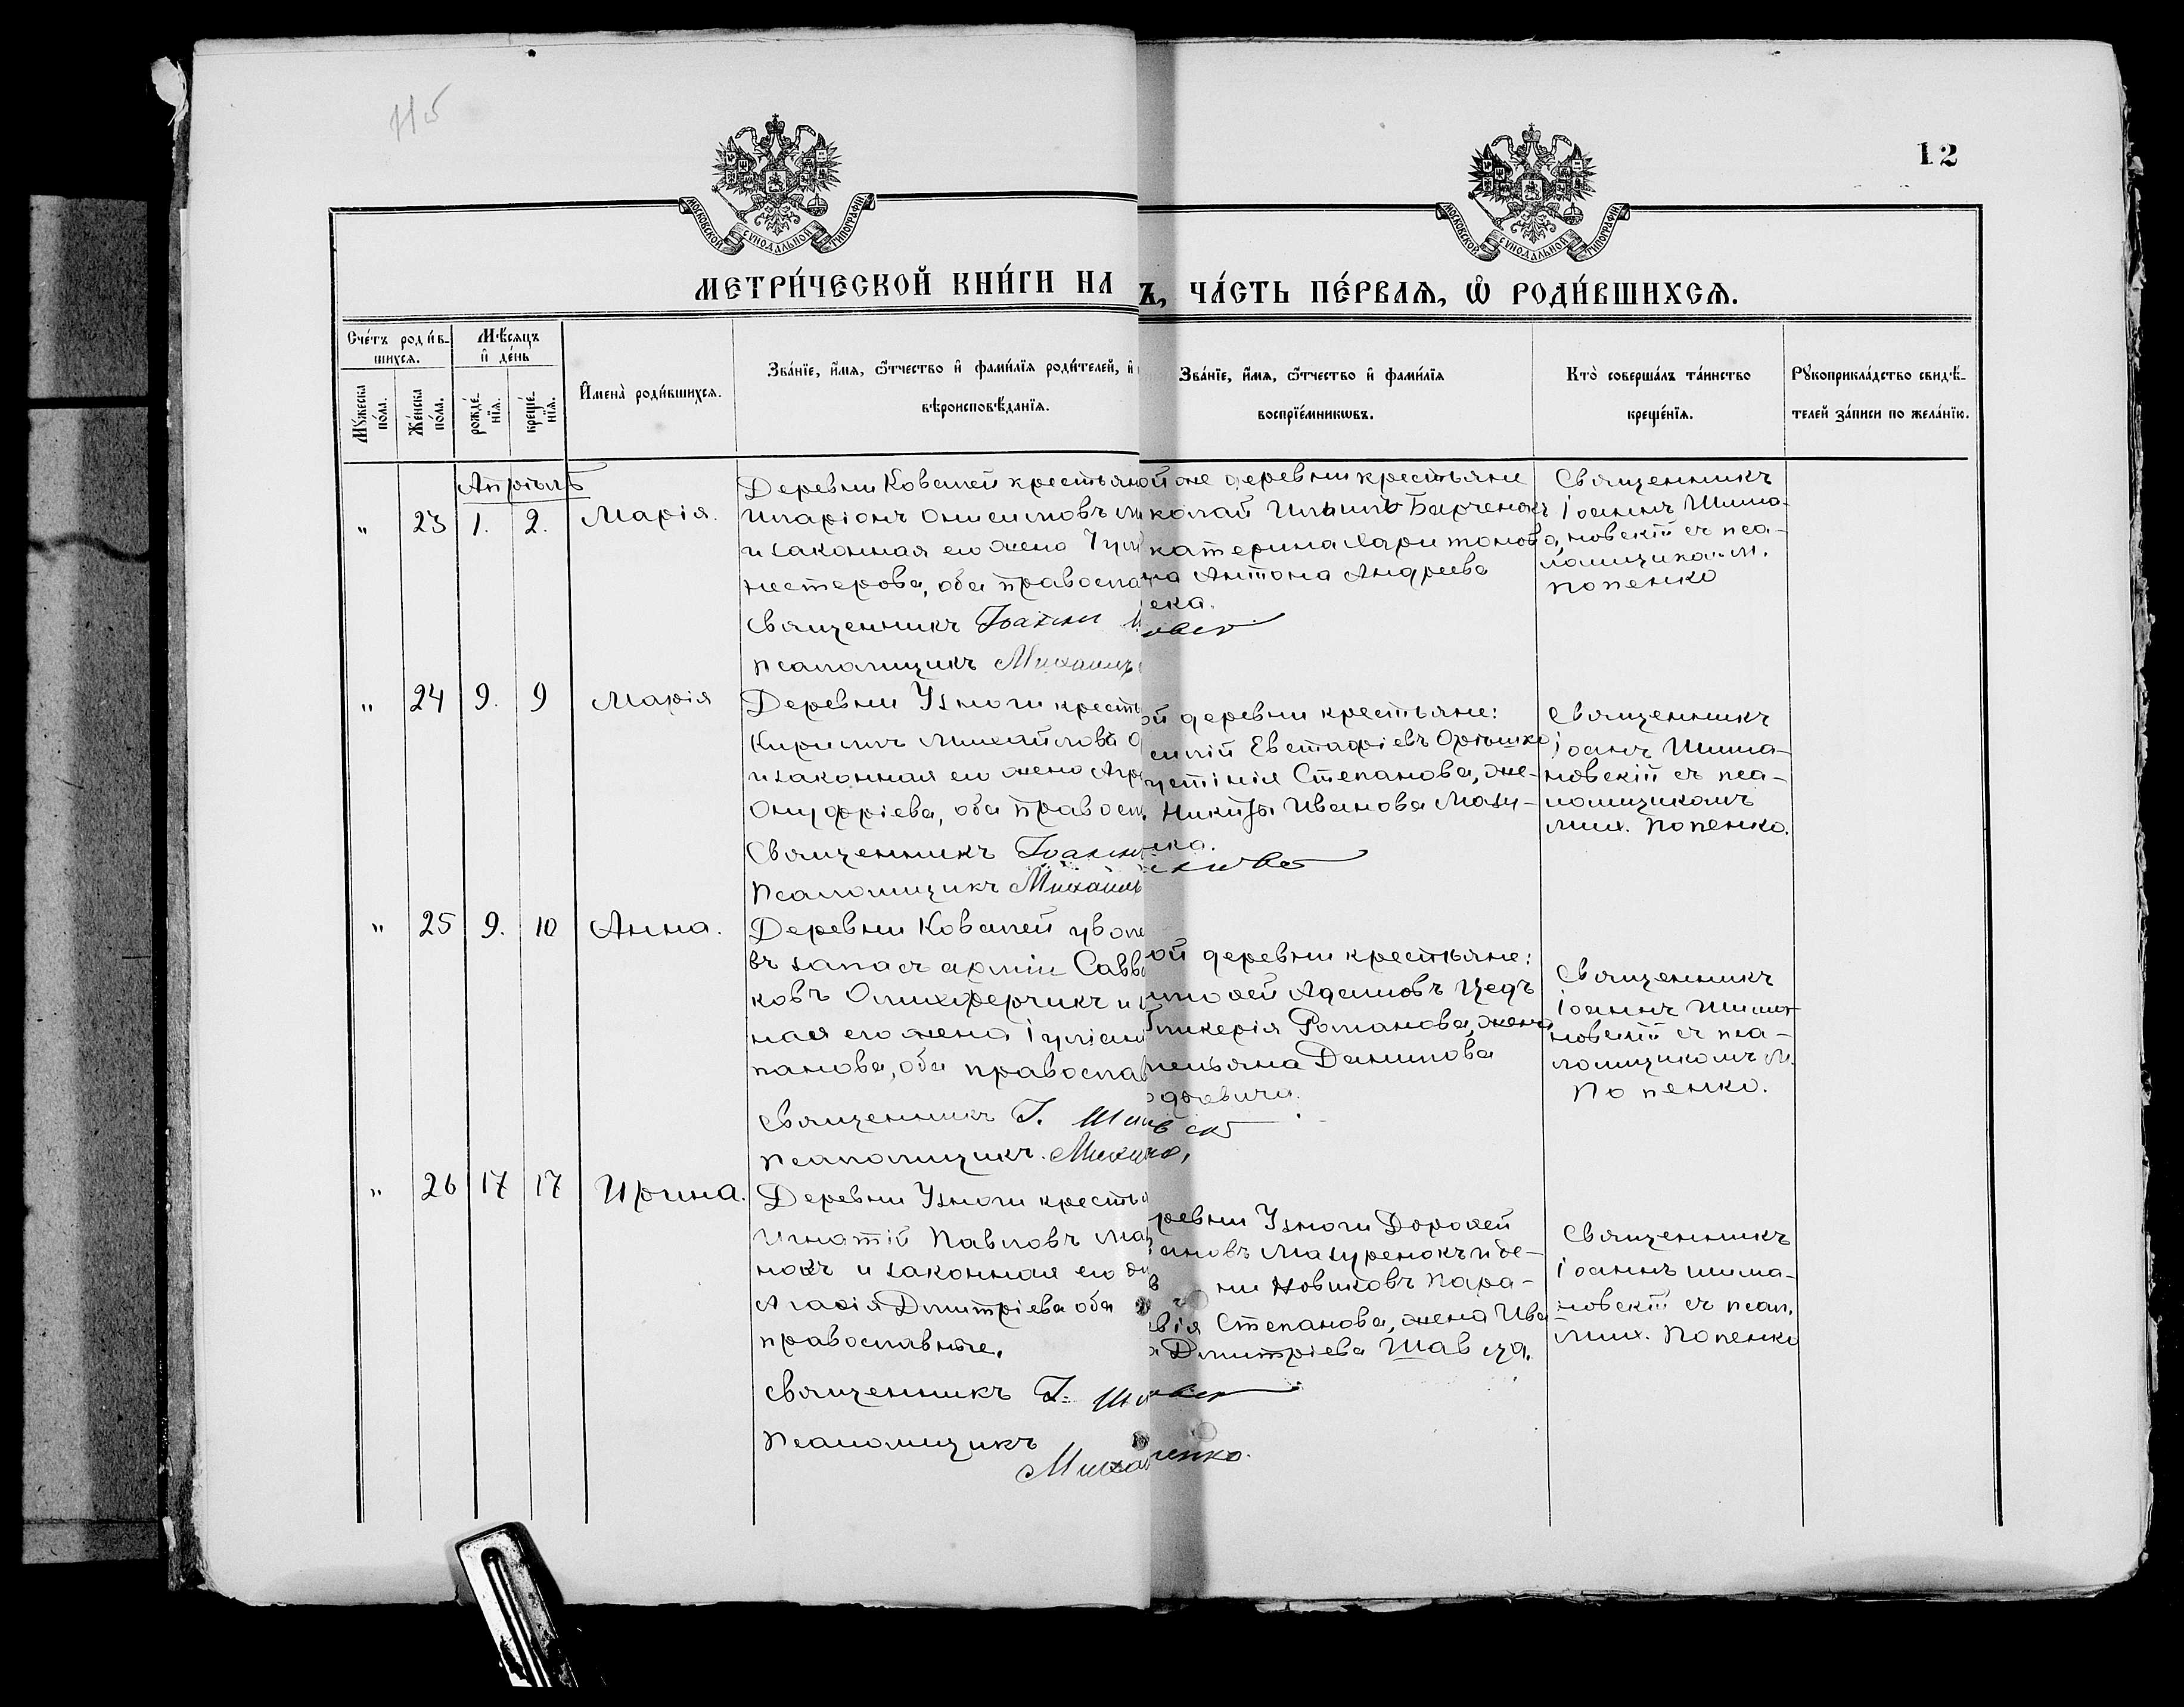 115
12
МОСКОВСКОЙ СУНОДАЛЬНОЙ ТИПОГРАФІИ
МОСКОВСКОЙ СУНОДАЛЬНОЙ ТИПОГРАФІИ
МЕТРИ́ЧЕСКОЙ КНИ́ГИ НА
Ъ, ЧА́СТЬ ПЕ́РВАѦ, Ѡ҆ РОДИ́ВШИХСѦ.
Сче́тъ роди́в-
шихсѧ.
Мꙋ́жеска по́ла.
Же́нска по́ла.
Мѣ́сѧцъ
и҆ де́нь
рожде́-
нїѧ.
креще́-
нїѧ.
И҆мена̀ роди́вшихсѧ.
Зва́нїе, и҆́мѧ, ѻ҆́тчество и҆ фами́лїѧ роди́телей, и҆
вѣроисповѣ́данїѧ.
Зва́нїе, и҆́мѧ, ѻ҆́тчество и҆ фами́лїѧ
воспрїе́мникѡвъ.
Кто̀ соверша́лъ та́инство
креще́нїѧ.
Рꙋкоприкла́дство свидѣ́-
телей за́писи по жела́нїю.
Апрѣль
" 23 1. 2. Марія.
Деревни Ковалей крестьян
Иларіонъ Онисимовъ
и законная его жена
нестерова, оба правосла
Священникъ Іоаннъ
Псаломщикъ Михаилъ
ой же деревни крестьяне
колай Ильинъ Барченокъ
катерина Харитонова,
на Антона Андреева
ека.
Священникъ
Іоаннъ Шима-
новскій съ пса-
ломщикомъ М.
Попенко
" 24 9. 9 Марія
Деревни Узноги кресть
Кириллъ Михайловъ О
и законная его жена Агр
Онуфріева, оба правосл
Священникъ Іоаннъ
Псаломщикъ Михаилъ
ой деревни крестьяне:
силій Евстафіевъ Орѣшко
устинія Степанова, же-
Никиты Иванова Мазу-
нка.
Священникъ
Іоаннъ Шима-
новскій съ пса-
ломщикомъ
Мих. Попенко.
" 25 9. 10 Анна.
Деревни Ковалей увол
въ запасъ арміи Савв
ковъ Олихферчикъ и
ная его жена Іуліан
панова, оба православ
Священникъ І. Шим
Псаломщикъ Михаи
ой деревни крестьяне:
имофей Адамовъ Цедъ
ликерія Романова, жена
мельяна Данилова
одкевича.
Священникъ
Іоаннъ Шима-
новскій съ пса-
ломщикомъ М.
Попенко.
" 26 17 17 Ирина.
Деревни Узноги кресть
Игнатій Павловъ Маз
нокъ и законная его
Агафія Дмитріева оба
православные.
Священникъ І. Ши
Псаломщикъ
Миха
ревни Узноги Дорофей
ановъ Мазуренокъ и де-
ни Новиковъ Пара-
вія Степанова, жена Ива
а Дмитріева Шавца.
енко.
Священникъ
Іоаннъ Шима-
новскій съ псал.
Мих. Попенко